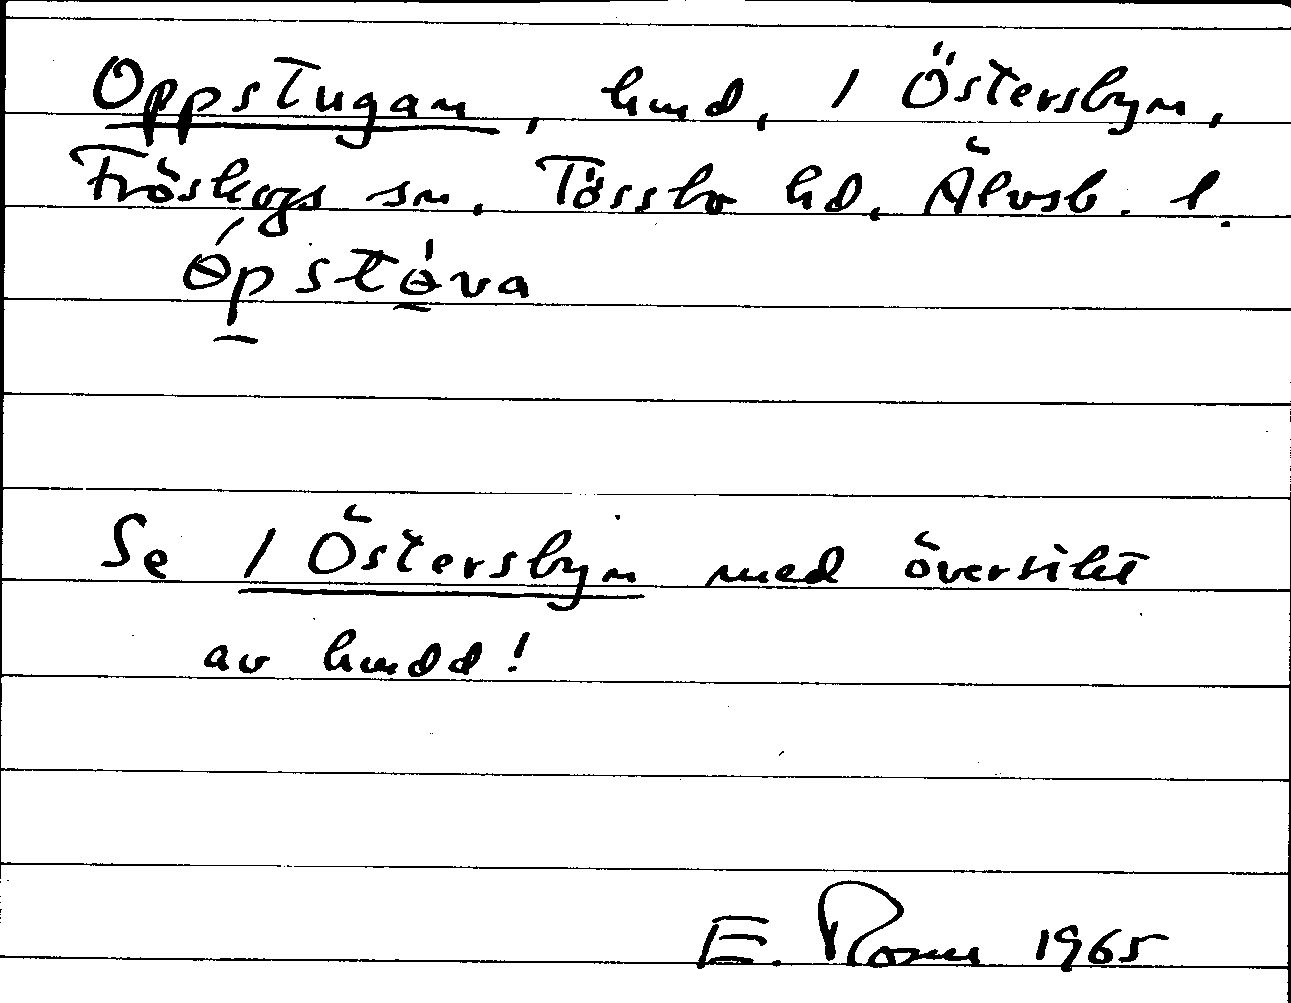 Oppstugan, hmd, 1 Östersbyn,
Fröskogs sn. Tössbo hd. Älvsb. l.
ɵ́pstɵ́va
Se 1 Östersbyn med översikt
av hmdd!
E. Rosell 1965